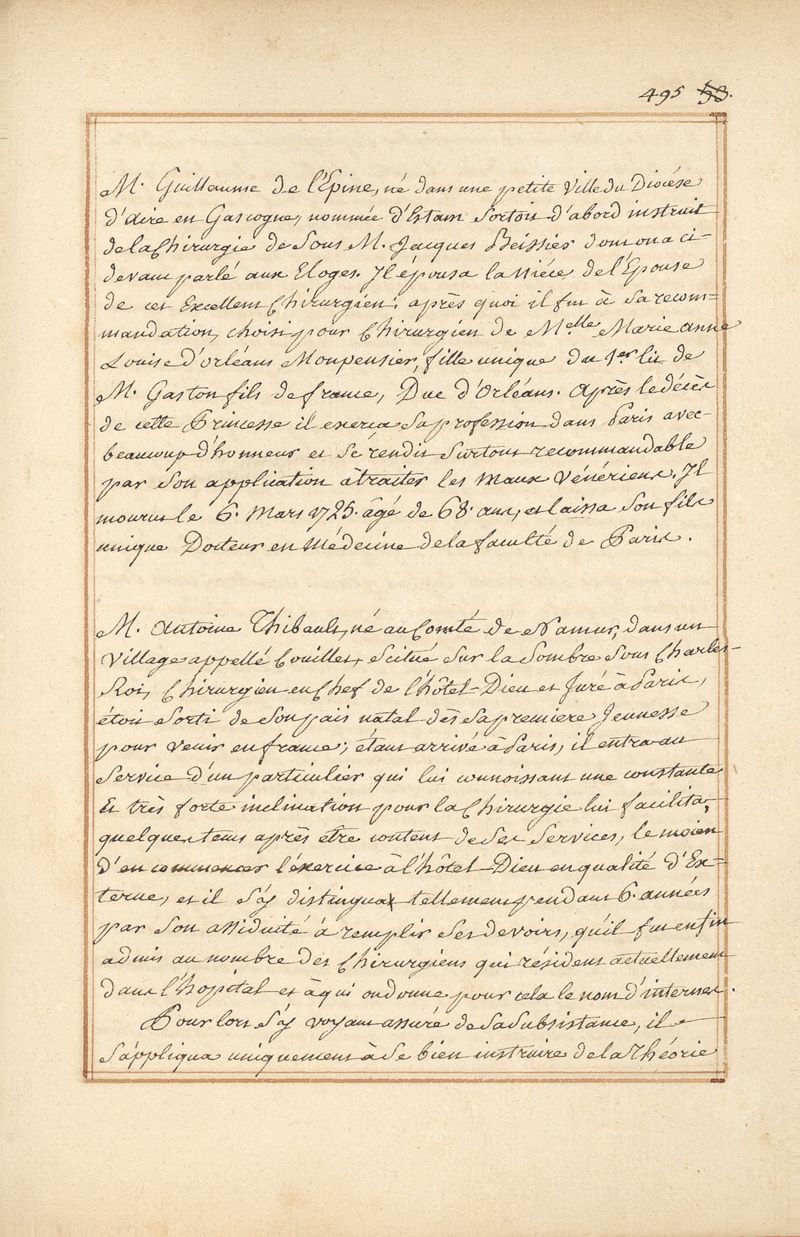 495
M. Guillaume de l'Epine, né dans une petite Ville du Diocése
d'aire en Gascogne, nommée d'Estam Sortoit d'abord instruit
de la Chirurgie de Sous M. Jacques Beissier dont on a ci-
devant parlé aux Eloges. Il épousa la Niéce de l'Epouse
de cet Excellent Chirurgien; après quoi il fut à Sa recom=
mandation, choisi pour Chirurgien de Melle Marie anne
Louise d'orléans Monpensier, fille unique du 1er lit de
M. Gaston fils de france, Duc d'Orléans. Après le décès
de cette Princesse il exerça Sa profession dans Paris avec
beaucoup d'honneur et Se rendit Surtout recommandable
par Son application à traiter les Maux Vénériens. Il
mourut le 6. Mars 1725. âgé de 68. ans, et laissa Son fils
unique Docteur en Médecine de la faculté de Paris.
M. Antoine Thibault, né au Comté de Namur, dans un
Village appellé Couillet, Scitué Sur la Sombre Sous Charles-
Roi, Chirurgien en Chef de l'hôtel-Dieu et Juré à Paris,
étoit Sorti de Son païs natal dès Sa premiere Jeunesse
pour venir en france; étant arrivé à Paris, il entra au
Service d'un particulier qui lui connoissant une constante
Et très forte inclination pour la Chirurgie lui facilita,
quelque tems après etre content de Ses Services, le moien
d'en commencer l'éxercice à l'hôtel-Dieu en qualité d'Ex=
terne, et il S'y distingua tellement pendant 6. années
par Son assiduité à remplir Ses devoirs, qu'il fut enfin
admis au nombre des Chirurgiens qui résident actuellement
dans l'hopital et à qui on donne pour cela le nom d'internes.
Pour lors S'y voyant assuré de Sa Subsistance, il
S'appliqua uniquement à Se bien instruire de la Théorie